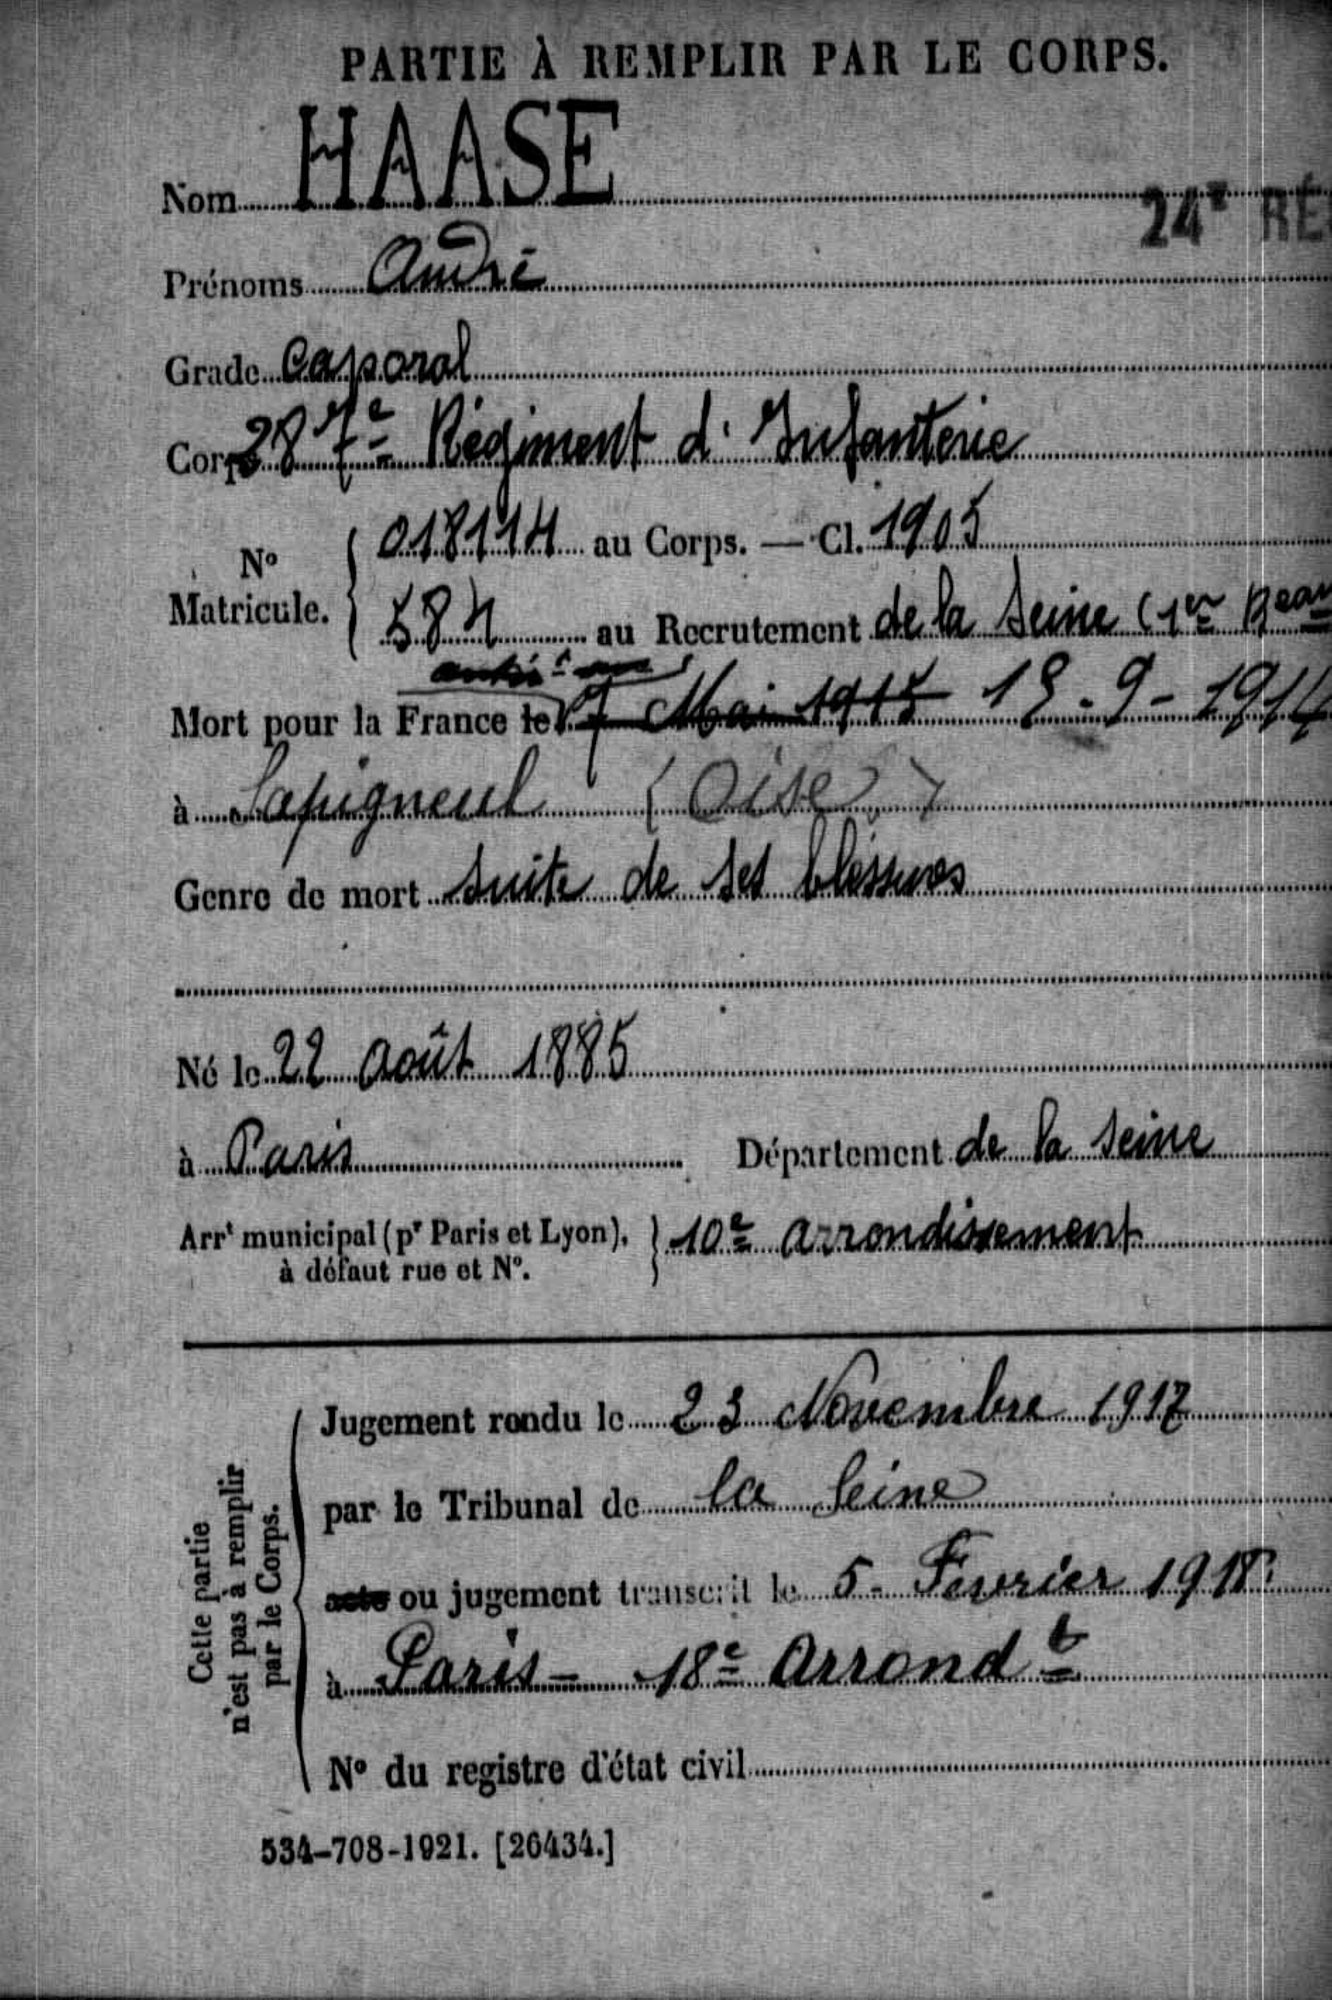 PARTIE À REMPLIR PAR LE CORPS.
Nom HAASE
24e RÉ
Prénoms André
Grade Caporal
Corps 287e Régiment d'Infanterie
N° Matricule. 018114 au Corps. — Cl. 1905
584 au Recrutement de la Seine (1er Beau
Mort pour la France le 17 Mai 1915 18-9-1914
à Sapigneul (Oise)
Genre de mort suite de ses blessures
Né le 22 Août 1885
à Paris Département de la Seine
Arrt municipal (pr Paris et Lyon), à défaut rue et N°. 10e arrondissement
Cette partie n'est pas à remplir par le Corps.
Jugement rendu le 23 Novembre 1917
par le Tribunal de la Seine
acte ou jugement transcrit le 5 Février 1918
à Paris - 18e Arrondt
N° du registre d'état civil
534-708-1921. [26434.]